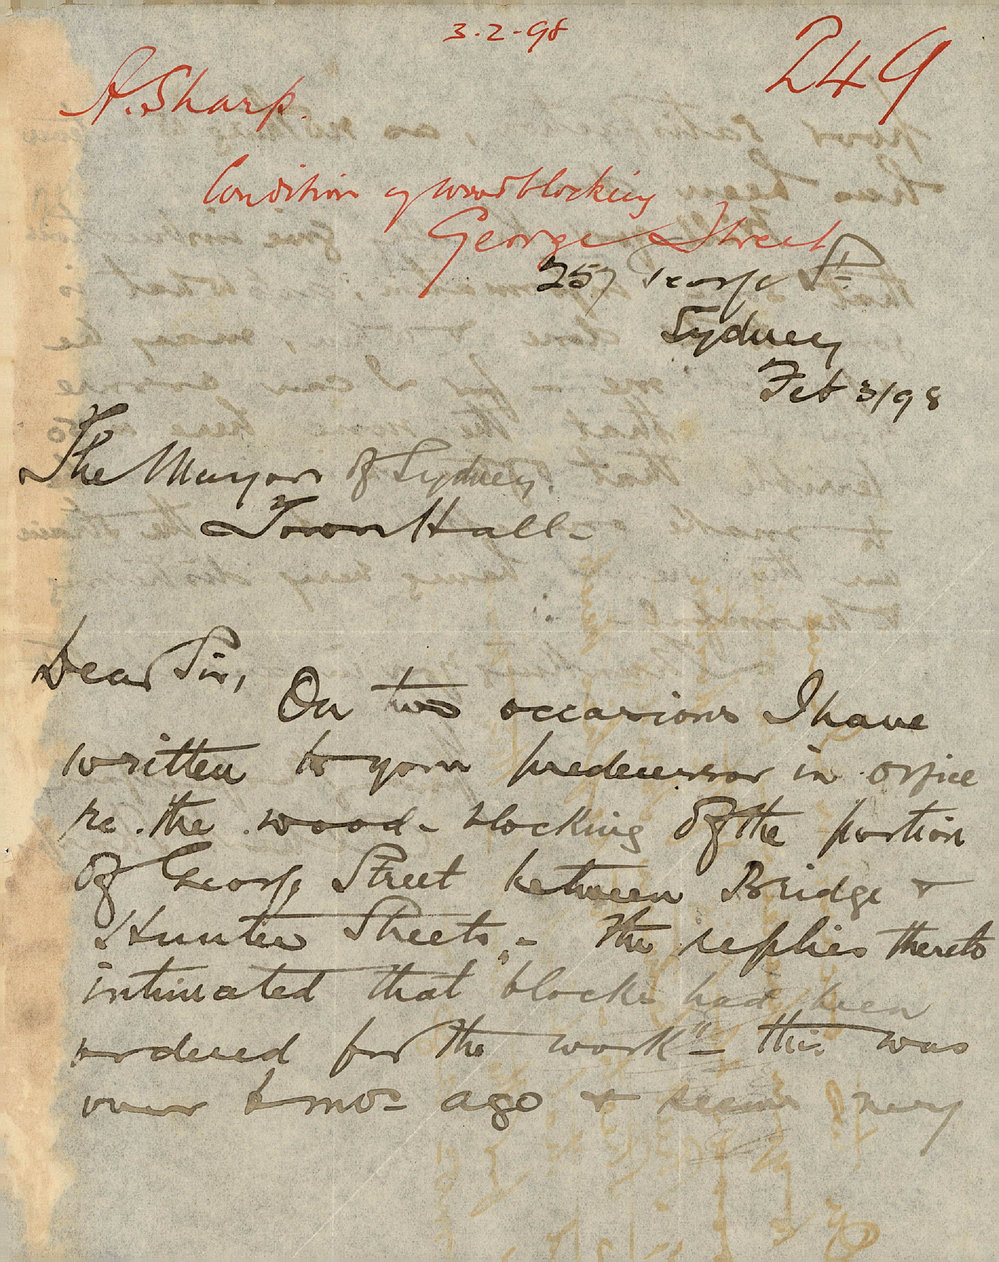 3-2-98
249
A. Sharp.
Condition of wood blocking
George Street
257 George St
Sydney
Feb 3/98
The Mayor of Sydney
Town Hall-
Dear Sir,
On two occasions I have
written to your predecessor in office
re. the wood-blocking of the portion
of George Street between Bridge &
Hunter Streets - The replies thereto
intimated that "blocks had been
ordered for the work" - this was
over mos ago & seems very